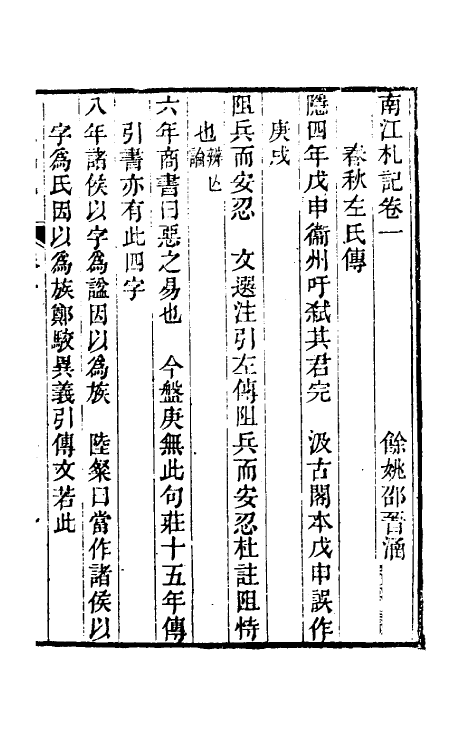 南江札記卷一　餘姚邵晉涵
春秋左氏傳
隱四年戊申衞州吁弑其君完　汲古閣本戊申誤作
庚戌
阻兵而安忍　文選注引左傳阻兵而安忍杜註阻恃
也辨亾論
六年商書曰惡之易也　今盤庚無此句莊十五年傳
引書亦有此四字
八年諸侯以字爲諡因以爲族　陸粲曰當作諸侯以
字爲氏因以爲族鄭駁異義引傳文若此